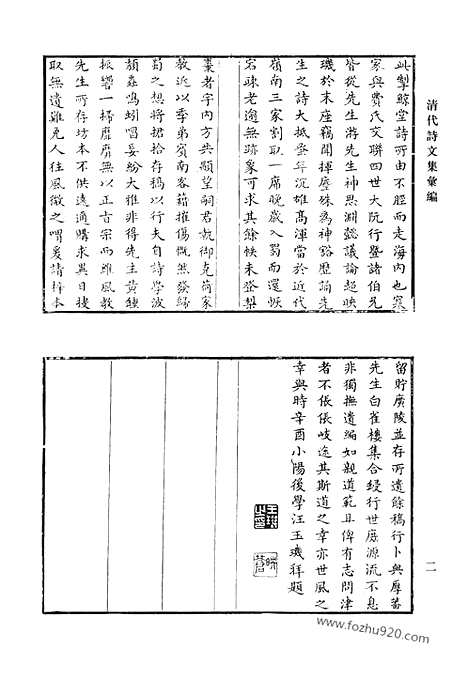 清代詩文集彙編
此掣鯨堂詩所由不脛而走海内也寒
家與費氏交聯四世大阮行暨諸伯兄
皆從先生游先生神思淵懿議論超映
璣於末座竊聞揮麈殊為神豁歷論先
生之詩大抵盛年沉雄高渾當於近代
嶺南三家割取一席晚歲入蜀而還帙
宕疎老適無迹象可求其餘帙未登梨
棗者宇内方共顒望嗣君執御克荷家
教近以季弟賓南客籍摧傷慨然發歸
蜀之想將捃拾存稿以行夫自詩學波
頹蟲鳴蚓唱妥紛大雅非得先生黄鐘
振響一掃靡靡無以正古宗而維風教
先生所存坊本不供遠近購求異日搜
取無遺難免人往風微之喟爰請梓本
留貯廣陵並存所遺餘稿行卜與厚蕃
先生白雀樓集合鋟行世庶源流不息
非獨撫遺編如親道範且俾有志問津
者不倀倀岐途其斯道之幸亦世風之
幸與時辛酉小陽後學汪玉璣拜題
二
www.fozhu920.com